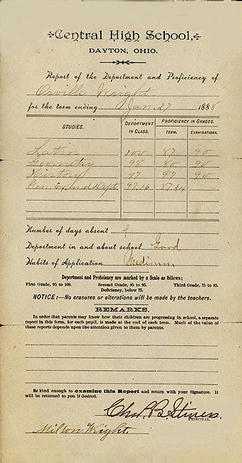 Central High School,
DAYTON, OHIO.
Report of the Department and Proficiency of
Orville Wright
for the term ending Jan. 27 188
STUDIES. DEPARTMENT IN CLASS. PROFICIENCY IN GRADES.
TERM. EXAMINATIONS.
Latin 100 87 90
Geometry 98 80
History 97 90
Number of days absent
Department in and about school Good
Habits of Application Medium
Department and Proficiency are marked by a Scale as follows;
First Grade, 95 to 100. Second Grade, 85 to 95. Third Grade, 75 to 85.
Deficiency, below 75.
NOTICE:—No erasures or alterations will be made by the teachers.
REMARKS.
In order that parents may know how their children are progressing in school, a separate
report in this form, for each pupil, is made at the end of each term. Much of the value of
these reports depends upon the attention given to them by parents.
Be kind enough to examine this Report and return with your Signature. It
will be returned to you if desired.
Chas. B. Stivers
PRINCIPAL.
Milton Wright.